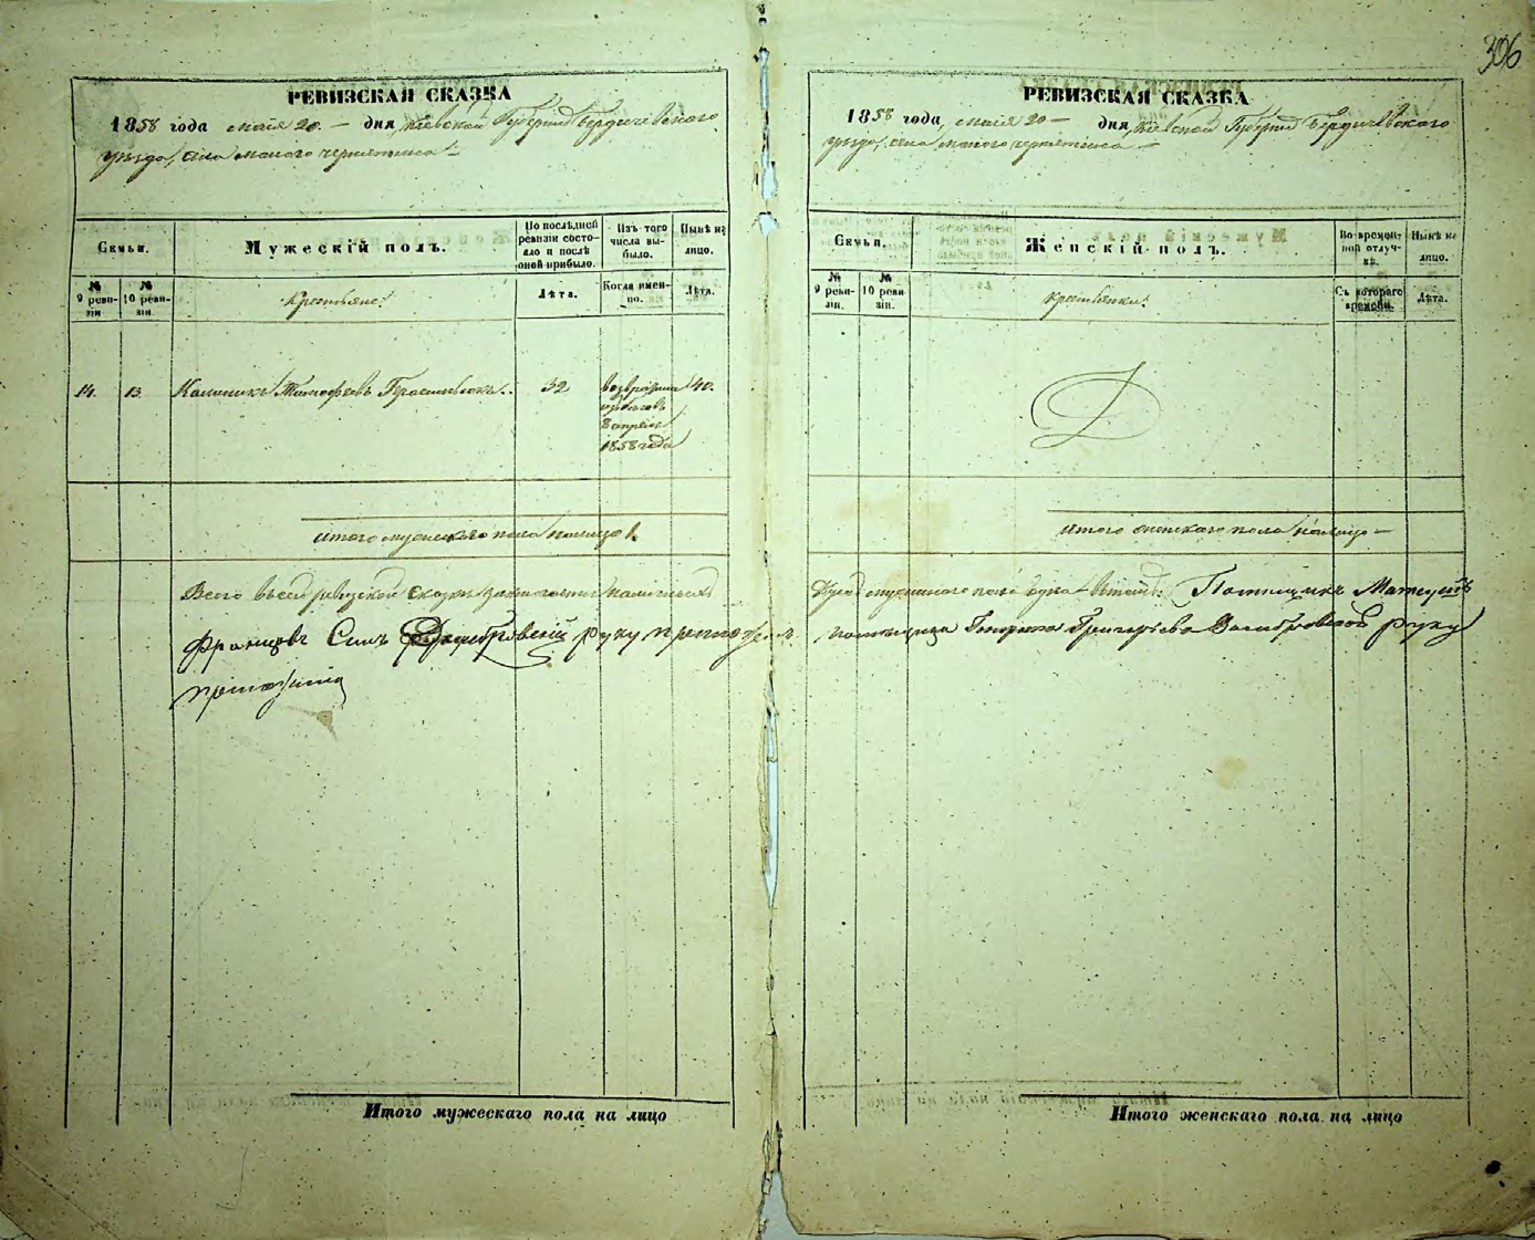 306
РЕВИЗСКАЯ СКАЗКА
1858 года маія 20 — дня Кіевской Губерніи Бердичевскаго
уѣзда, села Малаго Чернятина
Семьи.
Мужескій полъ.
По послѣдней ревизіи состояло и послѣ оной прибыло.
Изъ того числа выбыло.
Нынѣ на лицо.
№ 9 ревизіи
№ 10 ревизіи
Крестьяне:
Лѣта.
Когда именно.
Лѣта.
14. 13. Калиникъ Тимофеевъ Герасимюкъ. 32 40.
возврати
изъ бѣговъ
8 апрѣля
1858 года
итого мужескаго пола налицо 1.
Всего в сей ревизской Сказки наличныхъ
Францовъ Сынъ руку приложилъ
приложила
Итого мужескаго пола на лицо
РЕВИЗСКАЯ СКАЗКА
1858 года, маія 20 — дня, Кіевской Губерніи Бердичевскаго
уѣзда, села Малаго Чернятина —
Семьи.
Женскій полъ.
Во временной отлучкѣ.
Нынѣ на лицо.
№ 9 ревизіи.
№ 10 ревизіи.
Крестьянки:
Съ котораго времени.
Лѣта.
итого женскаго пола налицо —
Душъ мужескаго пола одна Помѣщикъ Матеушъ
помѣщица Григорьева руку
Итого женскаго пола на лицо